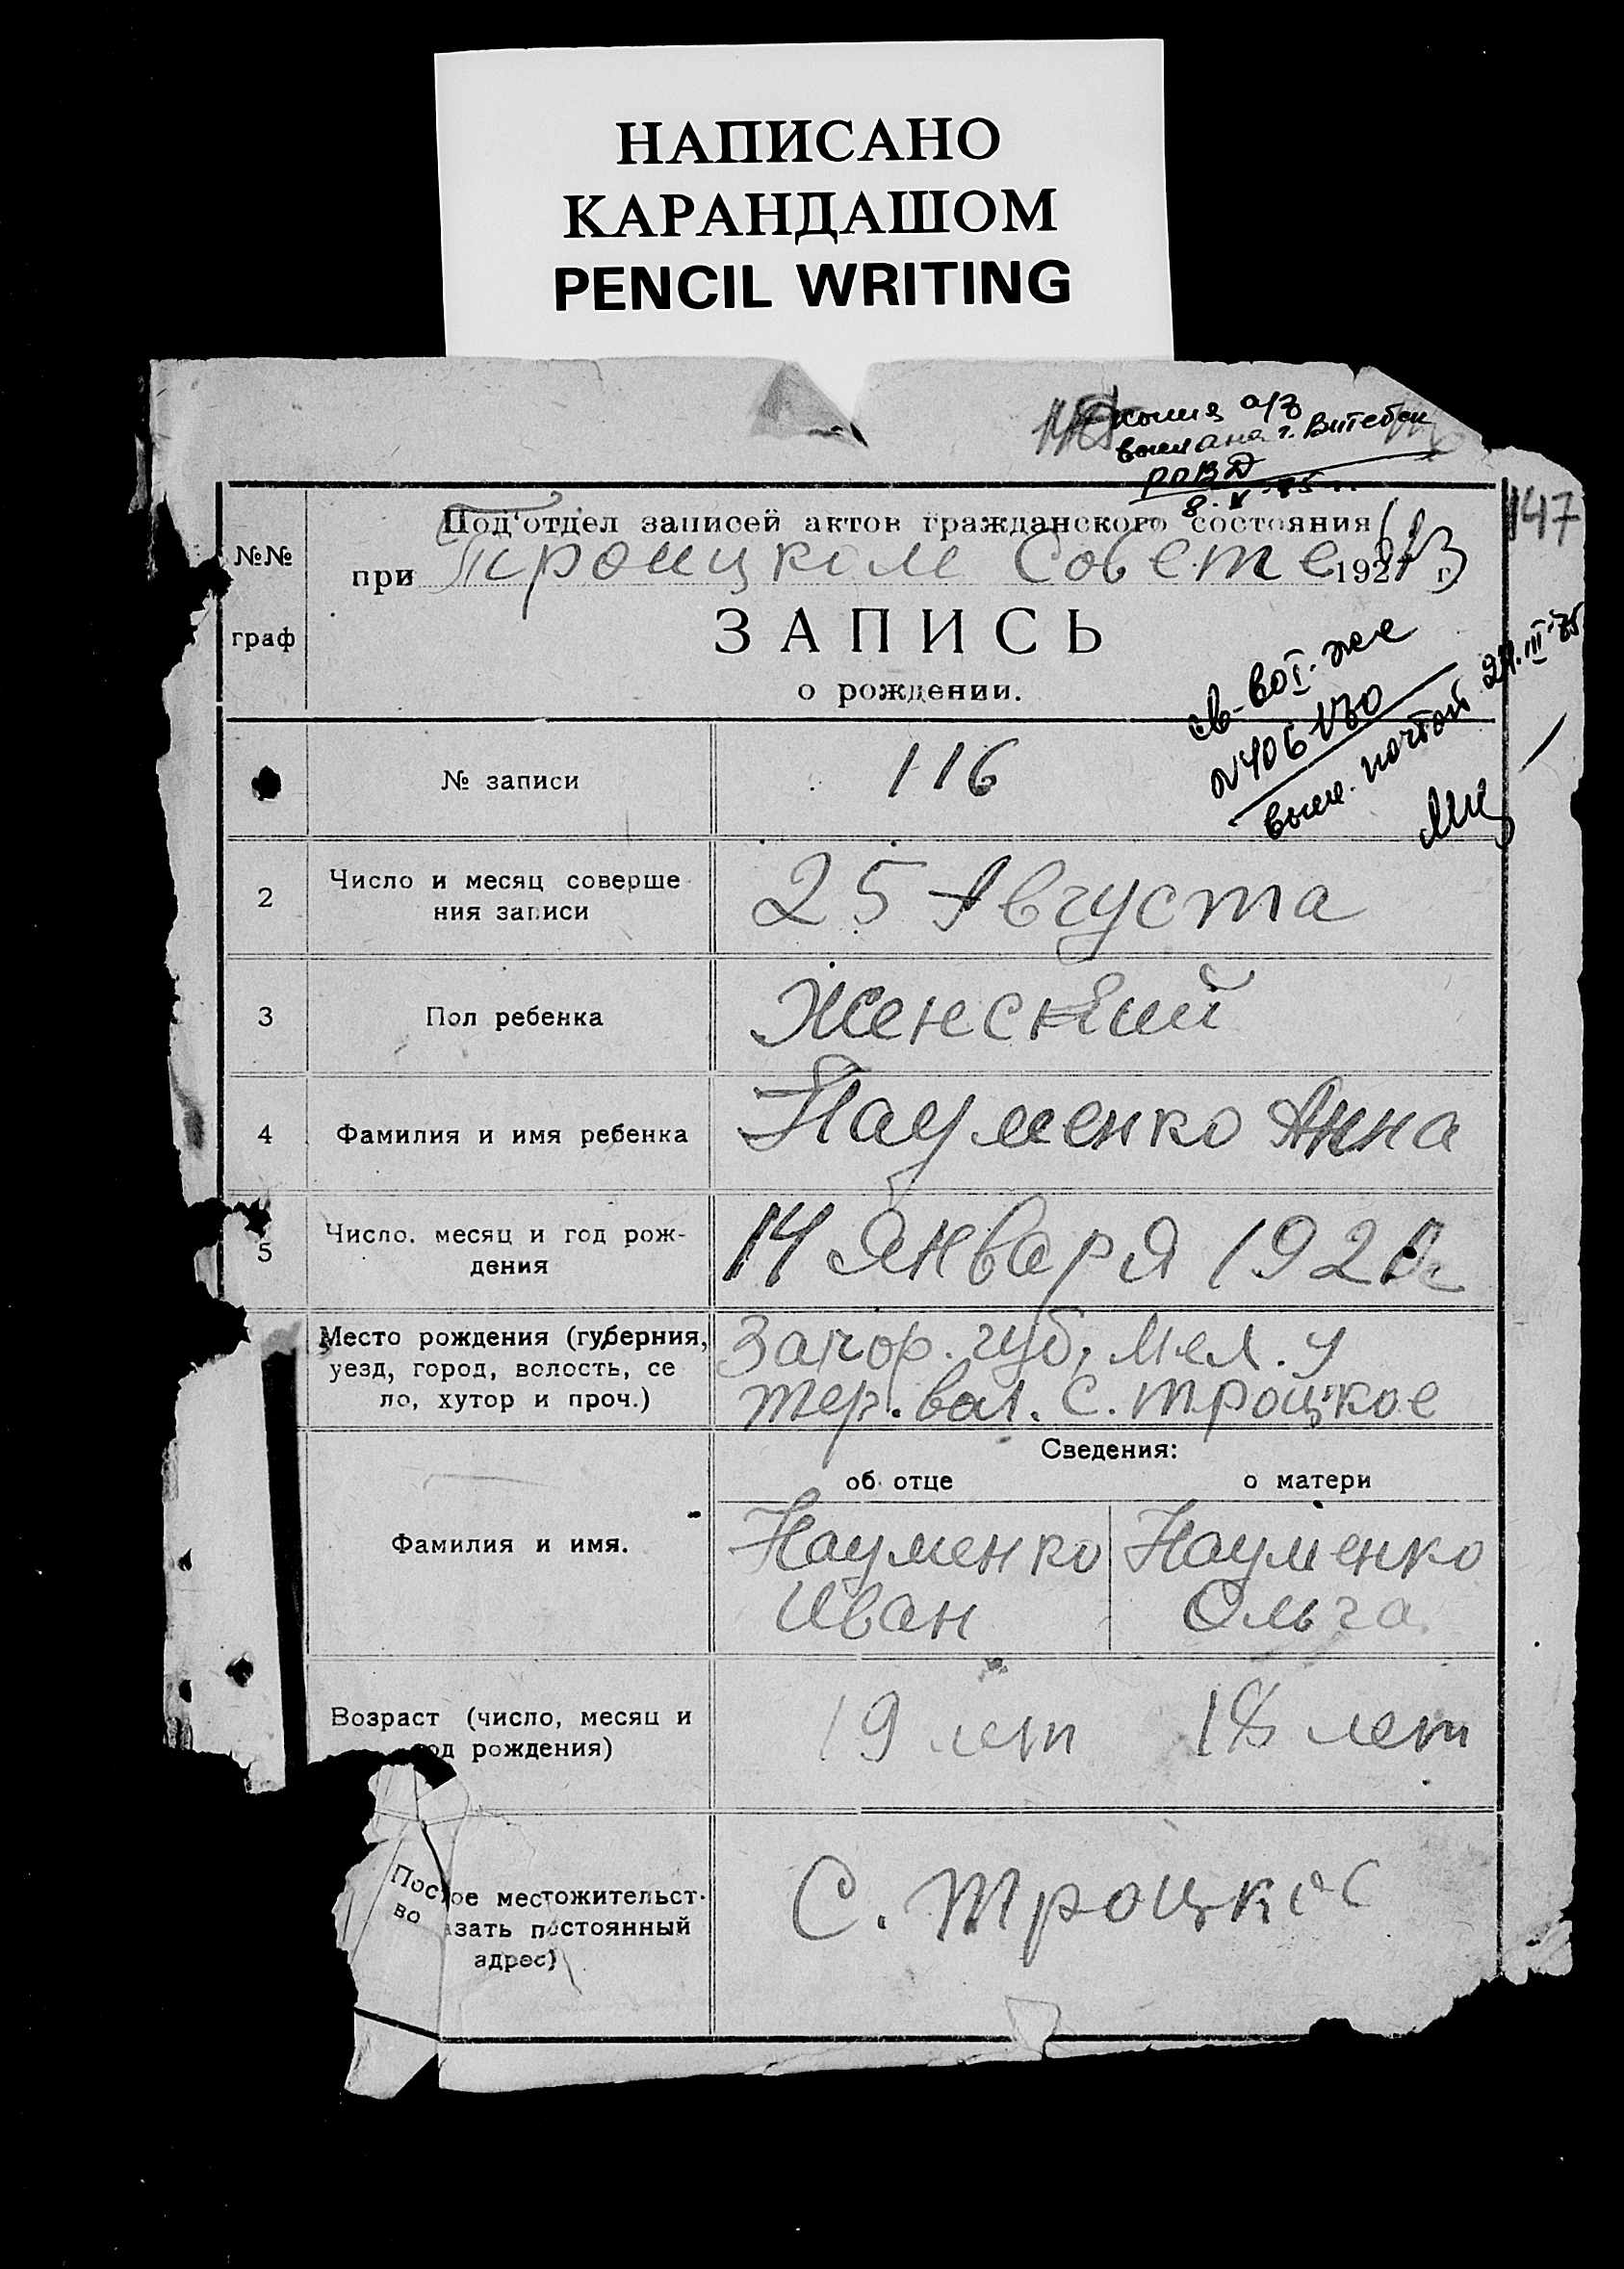 НАПИСАНО
КАРАНДАШОМ
PENCIL WRITING
копия а/з
выслана г. Витебск
РОВД
8. V
147
№№
граф
Под'отдел записей актов гражданского состояния
при Троицком Совете 192 г
ЗАПИСЬ
о рождении.
св-во I-же
№406130
высл. почтой 24.III-75
№ записи
116
2
Число и месяц соверше
ния записи
25 Августа
3
Пол ребенка
Женский
4
Фамилия и имя ребенка
Науменко Анна
5
Число. месяц и год рож-
дения
14 Января 192
Место рождения (губерния,
уезд, город, волость, се
ло, хутор и проч.)
Запор. губ, Мел. у
тер. вол. с. троцкое
Сведения:
об отце
о матери
Фамилия и имя.
Науменко
Иван
Науменко
Ольга
Возраст (число, месяц и
од рождения)
19 лет
18 лет
Пос ое местожительст-
во азать постоянный
адрес)
С. троцкое